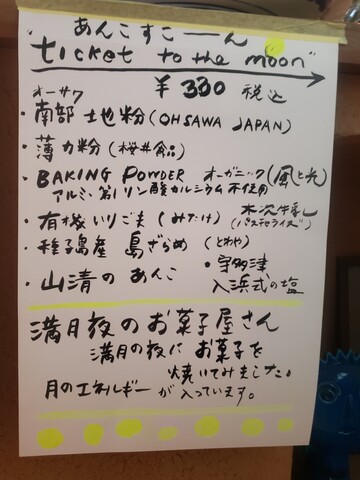 あんこすこーん
"ticket to the moon"
¥330 税込
オーサワ
・南部地粉(OHSAWA JAPAN)
・薄力粉(桜井食品)
・BAKING POWDER オーガニック(風と光)
アルミ・第1リン酸カルシウム不使用
・有機いりごま(みたけ) 木次牛乳
(パスチャライズド)
・種子島産 島ざらめ(とわや)
・山清のあんこ ・宇多津
入浜式の塩
満月夜のお菓子屋さん
満月の夜にお菓子を
焼いてみました。
月のエネルギーが入っています。